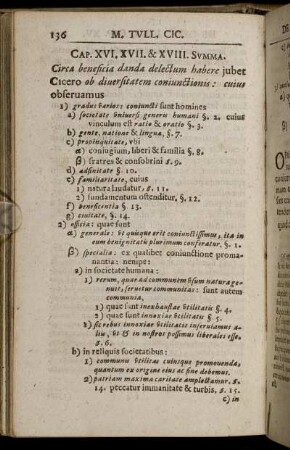 136 M. TVLL. CIC.
CAP. XVI, XVII. & XVIII. SVMMA.
Circa beneficia danda delectum habere jubet
Cicero ob diuersitatem coniunctionis: cuius
obseruamus
1) gradus varios: coniuncti sunt homines
a) societate vniuersi generis humani §. 2. cuius
vinculum est ratio & oratio §. 3.
b) gente, natione & lingua, §. 7.
c) propinquitate, vbi
α) coniugium, liberi & familia §. 8.
β) fratres & consobrini s. 9.
d) adfinitate §. 10.
e) familiaritate, cuius
1) natura laudatur, s. 11.
2) fundamentum ostenditur, §. 12.
f) beneficentia §. 13.
g) ciuitate, §. 14.
2) officia: quae sunt
α) generale: vt quisque erit coniunctissimus, ita in
eum benignitatis plurimum conferatur. §. 1.
β) specialia: ex qualibet coniunctione promanantia: nempe:
a) in societate humana:
1) rerum, quae ad communem vsum natura gonuit, seruetur communitas: sunt autem
communia,
1) quae sunt inexhaustae vtilitatis §. 4.
2) quae sunt innoxiae vtilitatis §. 5.
2) sic rebus innoxiae vtilitatis inseruiamus aliis, vt & in nostros possimus liberales esse.
s. 6.
b) in reliquis societatibus:
1) communis vtilitas cuiusque promouenda,
quantum ex origine eius ac fine debemus.
2) patriam maxima caritate amplectamur. s.
14. peccatur immanitate & turbis, s. 15.
c) in